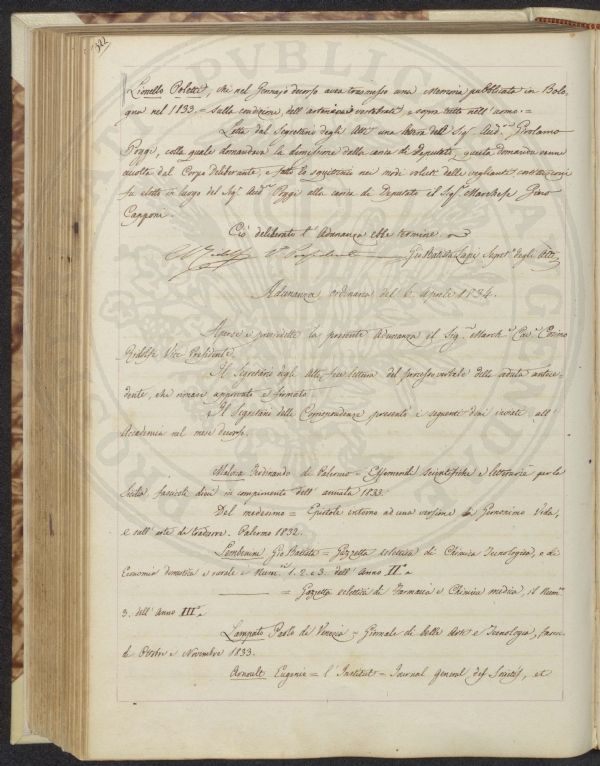 Lionello Poletti, che nel Gennajo decorso avea trasmesso una Memoria pubblicata in Bolo=
gna nel 1833 = sulla condizione dell'arteria vertebrale, e sopra tutto nell'uomo. =
Letta dal Segretario degli Atti una lettera dell' Sig.r Aud.re Girolamo
Poggi, colla quale domandava la demissione dalla carica di Deputato, questa domanda venne
accolta dal Corpo deliberante, e fatto lo squittinio nei modi voluti dalle veglianti costituzioni
fu eletto in luogo del Sig.r Aud.re Poggi alla carica di Deputato il Sig.r Marchese Gino
Capponi.
Ciò deliberato l'Adunanza ebbe termine
C. Ridolfi V. Presidente Gio Batista Lapi Segret.o degli Atti
Adunanza ordinaria del 6. Aprile 1834.
Aperse e presiedette la presente Adunanza il Sig.r March.e Cav.e Cosimo
Ridolfi Vice Presidente.
Il Segretario degli Atti, fece lettura del processo verbale della seduta antece=
dente, che rimase approvato e firmato.
Il Segretario delle Corrispondenze presentò i seguenti doni inviati all'
Accademia nel mese decorso.
Malvica Ferdinando di Palermo = Effemeridi scientifiche e letterarie per la
Sicilia, fascicoli dieci in compimento dell'annata 1833.
Del medesimo = Epistole intorno ad una versione di Geronimo Vida,
e sull'arte di tradurre. Palermo 1832.
Sembenini Gio Batista = Gazzetta eclettica di Chimica Tecnologica, e di
Economia domestica e rurale = Num.i 1. 2. e 3. dell'Anno II.o
= Gazzetta eclettica di Farmacia e Chimica medica, il Num.o
3. dell'Anno III.o
Lampato Paolo di Venezia = Giornale di belle Arti e Tecnologia, fasci.
di Ottobre e Novembre 1833.
Arnoult Eugenio = l'Institut = Journal general des Societés, et